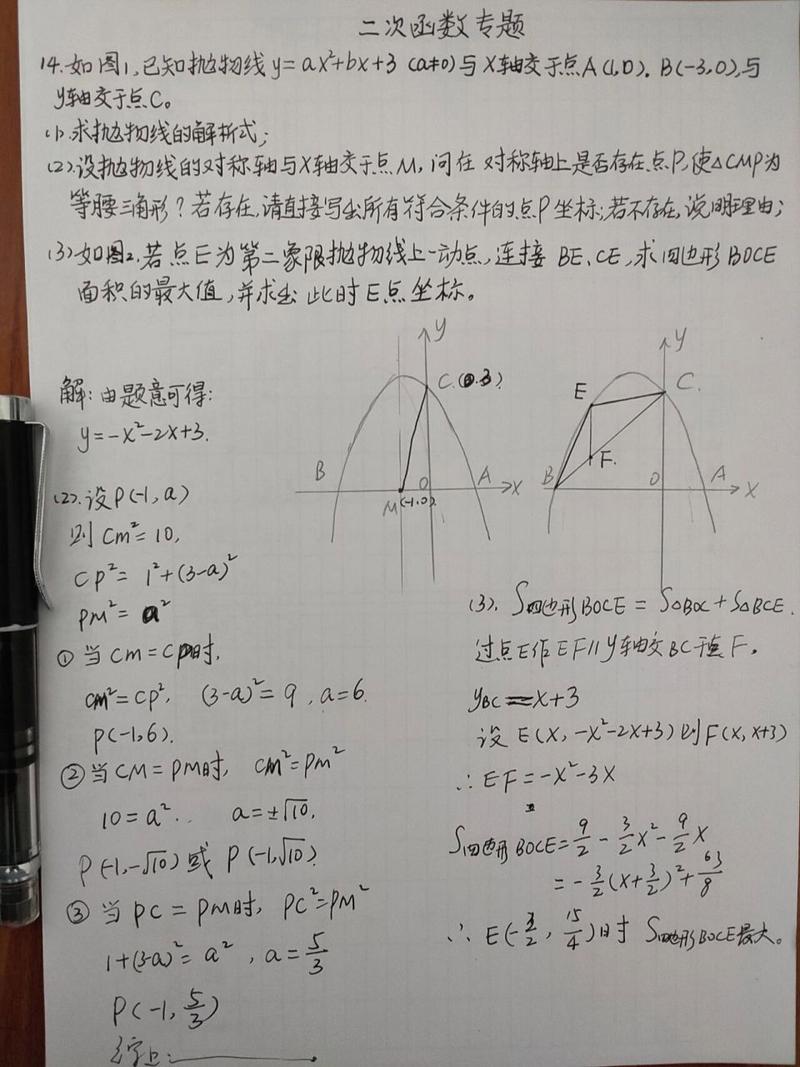 二次函数专题
14.如图1,已知抛物线y=ax²+bx+3 (a≠0)与X轴交于点A(1,0).B(-3,0),与
y轴交于点C。
(1).求抛物线的解析式;
(2).设抛物线的对称轴与X轴交于点M,问在对称轴上是否存在点P,使△CMP为
等腰三角形?若存在,请直接写出所有符合条件的点P坐标;若不存在,说明理由;
(3).如图2.若点E为第二象限抛物线上一动点,连接BE、CE,求四边形BOCE
面积的最大值,并求出此时E点坐标。
y
C.(0.3)
B
O
A
X
M(-1,0).
y
E
C.
F.
B
O
A
X
解:由题意可得:
y=-x²-2x+3.
(2).设P(-1,a)
则Cm²=10,
CP²=1²+(3-a)²
PM²=a²
①当CM=CP时,
CM²=CP², (3-a)²=9,a=6.
P(-1,6).
②当CM=PM时, CM²=PM²
10=a²∴ a=±√10,
P(-1,-√10)或P(-1,√10)
③当PC=PM时, PC²=PM²
1+(3-a)²=a²,a=5/3
P(-1,5/3)
综上:
(3).S四边形BOCE=S△BOC+S△BCE.
过点E作EF//y轴交BC于点F.
yBC=x+3
设E(X,-x²-2x+3)则F(x,x+3)
∴EF=-x²-3x
S四边形BOCE=9/2-3/2x²-9/2x
=-3/2(x+3/2)²+63/8
∴E(-3/2,15/4)时 S四边形BOCE最大。